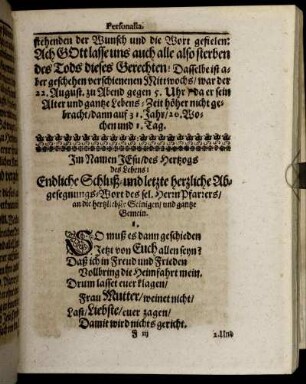 Personalia.
stehenden der Wunsch und die Wort gefielen:
Ach GOtt lasse uns auch alle also sterben
des Tods dieses Gerechten: Dasselbe ist a-
ber geschehen verschienenen Mittwochs/ war der
22. August. zu Abend gegen 5. Uhr/ da er sein
Alter und gantze Lebens-Zeit höher nicht ge-
bracht/ dann auf 31. Jahr/ 20. Wo-
chen und 1. Tag.
Im Namen JEsu/ des Hertzogs
des Lebens:
Endliche Schluß- und letzte herzliche Ab-
gesegnungs-Wort des sel. Herrn Pfarrers/
an die hertzliebste Seinigen/ und gantze
Gemein.
1.
SO muß es dann geschieden
Jetzt von Euch allen seyn?
Daß ich in Freud und Frieden
Vollbring die Heimfahrt mein.
Drum lasset euer klagen/
Frau Mutter/ weinet nicht/
Last/ Liebste/ euer zagen/
Damit wird nichts gericht.
F iij
2. Und